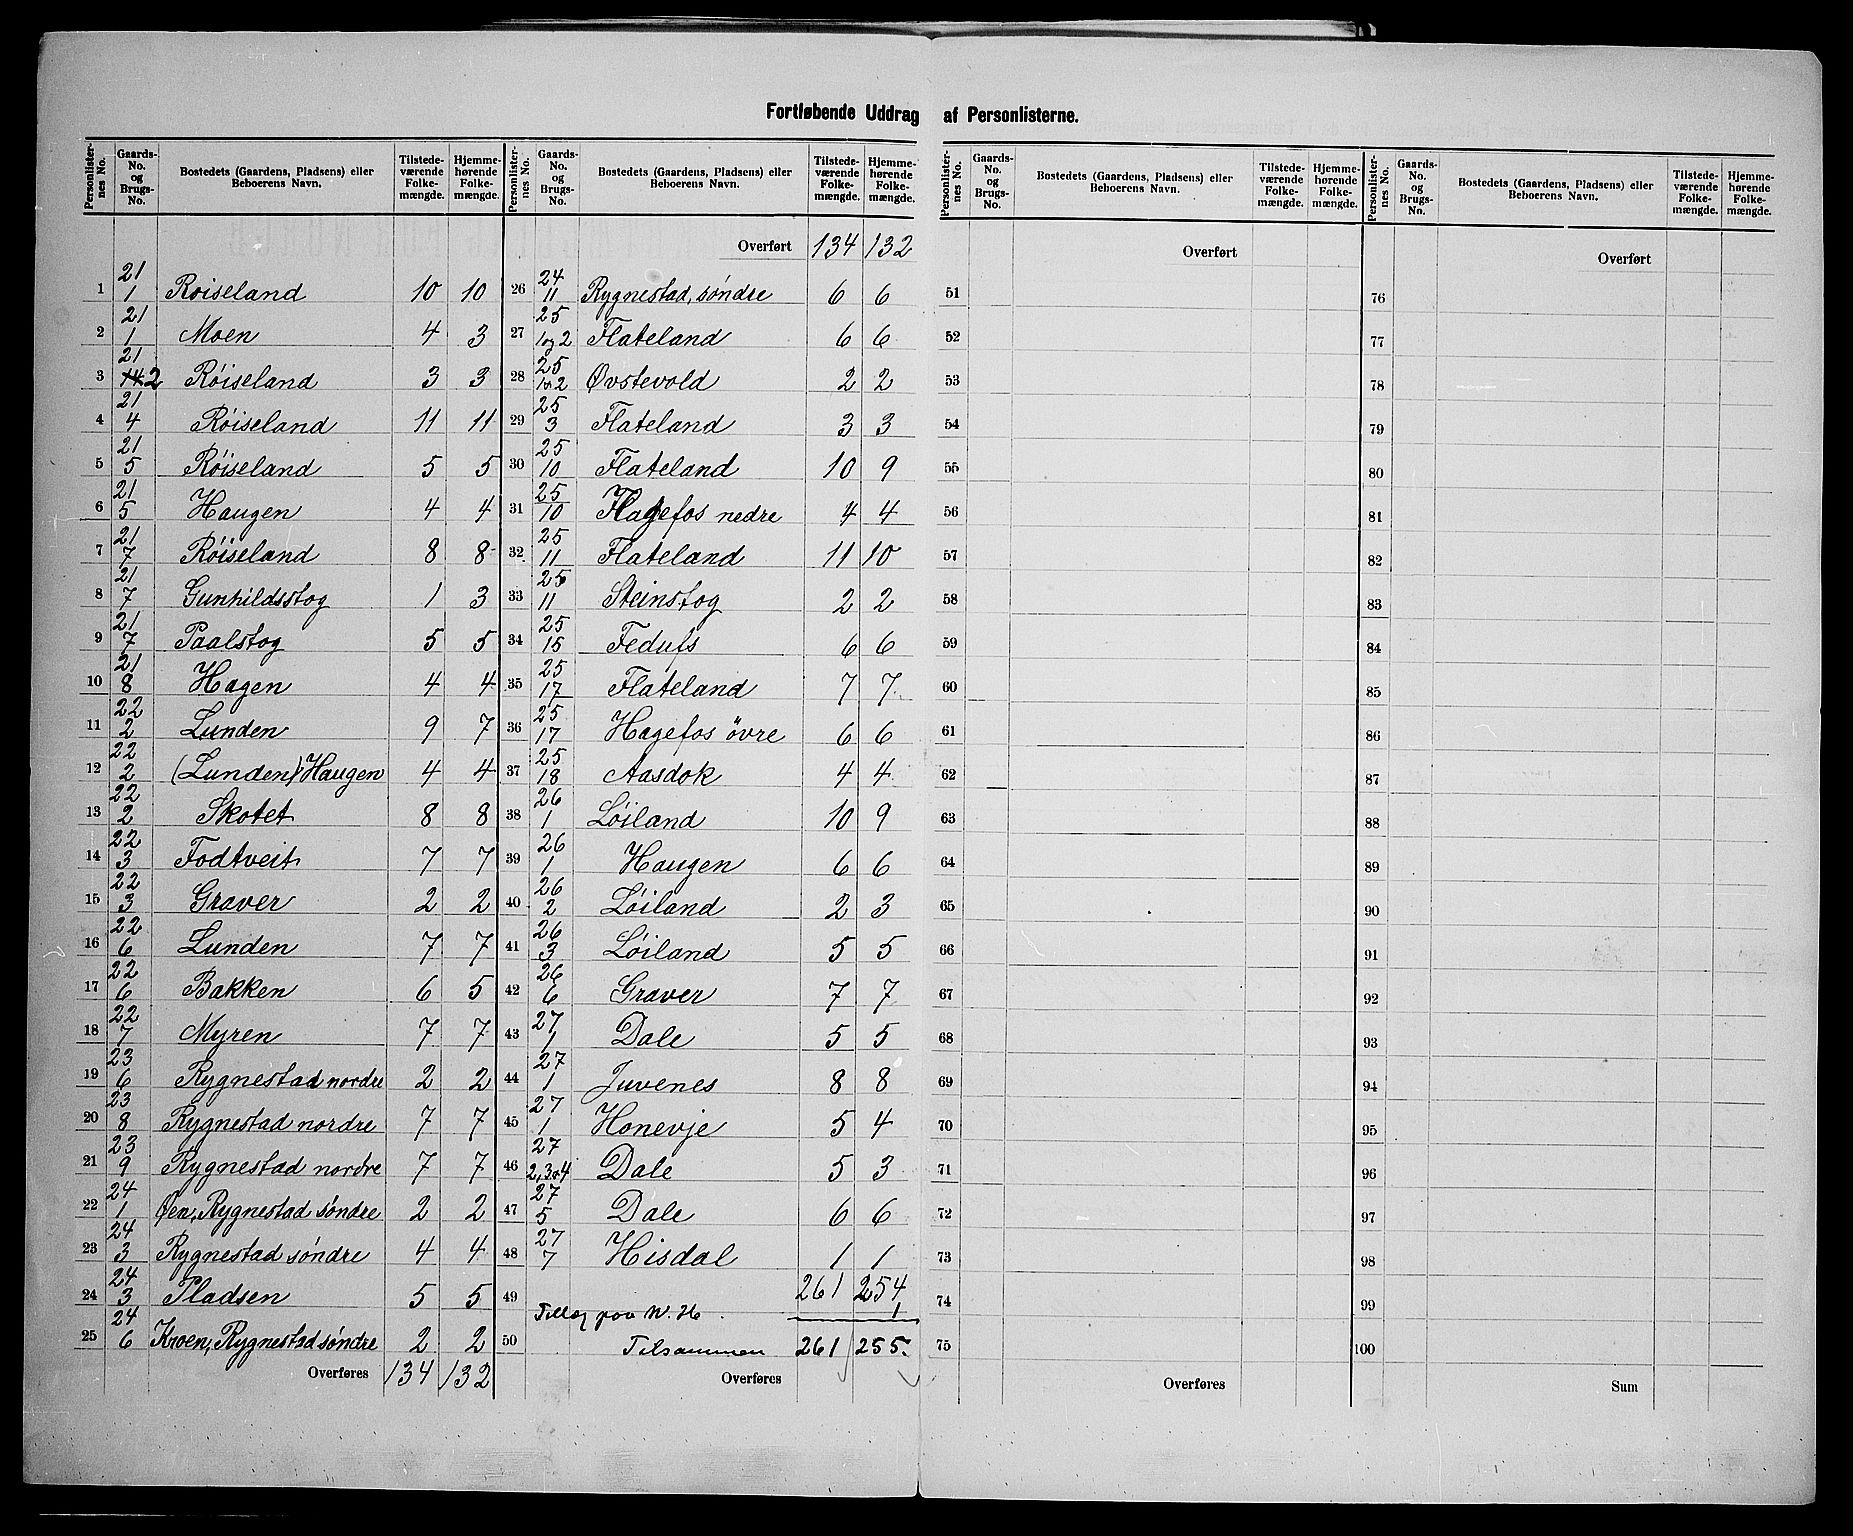 Fortløbende Uddrag af Personlisterne.
Personlister-nes No. | Gaards-No. og Brugs-No. | Bostedets (Gaardens, Pladsens) eller Beboerens Navn. | Tilstede-værende Folke-mængde. | Hjemme-hørende Folke-mængde.
1 | 21/1 | Røiseland | 10 | 10
2 | 21/1 | Moen | 4 | 3
3 | 21/2 | Røiseland | 3 | 3
4 | 21/4 | Røiseland | 11 | 11
5 | 21/5 | Røiseland | 5 | 5
6 | 21/5 | Haugen | 4 | 4
7 | 21/7 | Røiseland | 8 | 8
8 | 21/7 | Gunhildsstog | 1 | 3
9 | 21/7 | Paalstog | 5 | 5
10 | 21/8 | Hagen | 4 | 4
11 | 22/2 | Lunden | 9 | 7
12 | 22/2 | (Lunden) Haugen | 4 | 4
13 | 22/2 | Skotet | 8 | 8
14 | 22/3 | Fodtveit | 7 | 7
15 | 22/3 | Graver | 2 | 2
16 | 22/6 | Lunden | 7 | 7
17 | 22/6 | Bakken | 6 | 5
18 | 22/7 | Myren | 7 | 7
19 | 23/6 | Rygnestad nordre | 2 | 2
20 | 23/8 | Rygnestad nordre | 7 | 7
21 | 23/9 | Rygnestad nordre | 7 | 7
22 | 24/1 | Øen, Rygnestad søndre | 2 | 2
23 | 24/3 | Rygnestad søndre | 4 | 4
24 | 24/3 | Pladsen | 5 | 5
25 | 24/6 | Kroen, Rygnestad søndre | 2 | 2
Overføres | 134 | 132
Personlister-nes No. | Gaards-No. og Brugs-No. | Bostedets (Gaardens, Pladsens) eller Beboerens Navn. | Tilstede-værende Folke-mængde. | Hjemme-hørende Folke-mængde.
Overført | 134 | 132
26 | 24/11 | Rygnestad, søndre | 6 | 6
27 | 25/1 og 2 | Flateland | 6 | 6
28 | 25/1 & 2 | Øvstevold | 2 | 2
29 | 25/3 | Flateland | 3 | 3
30 | 25/10 | Flateland | 10 | 9
31 | 25/10 | Hagefos nedre | 4 | 4
32 | 25/11 | Flateland | 11 | 10
33 | 25/11 | Steinstog | 2 | 2
34 | 25/15 | Fedufs | 6 | 6
35 | 25/17 | Flateland | 7 | 7
36 | 25/17 | Hagefos øvre | 6 | 6
37 | 25/18 | Aasdok | 4 | 4
38 | 26/1 | Løiland | 10 | 9
39 | 26/1 | Haugen | 6 | 6
40 | 26/2 | Løiland | 2 | 3
41 | 26/3 | Løiland | 5 | 5
42 | 26/6 | Graver | 7 | 7
43 | 27/1 | Dale | 5 | 5
44 | 27/1 | Juvenes | 8 | 8
45 | 27/1 | Honevje | 5 | 4
46 | 27/2, 3 & 4 | Dale | 5 | 3
47 | 27/5 | Dale | 6 | 6
48 | 27/7 | Hisdal | 1 | 1
261 | 254
49 | Tillæg paa N. 26 | 1
50 | Tilsammen | 261 | 255
Overføres
Personlister-nes No. | Gaards-No. og Brugs-No. | Bostedets (Gaardens, Pladsens) eller Beboerens Navn. | Tilstede-værende Folke-mængde. | Hjemme-hørende Folke-mængde.
Overført
51
52
53
54
55
56
57
58
59
60
61
62
63
64
65
66
67
68
69
70
71
72
73
74
75
Overføres
Personlister-nes No. | Gaards-No. og Brugs-No. | Bostedets (Gaardens, Pladsens) eller Beboerens Navn. | Tilstede-værende Folke-mængde. | Hjemme-hørende Folke-mængde.
Overført
76
77
78
79
80
81
82
83
84
85
86
87
88
89
90
91
92
93
94
95
96
97
98
99
100
Sum